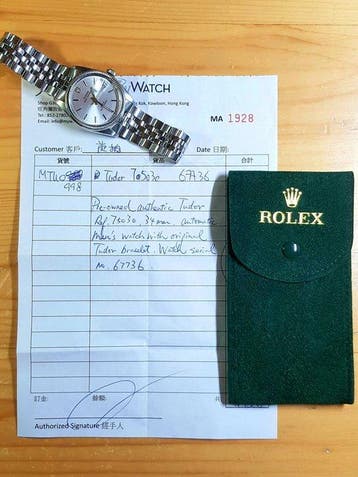 WATCH
Shop G
Kok, Kowloon, Hong Kong
Tel: 852-2780
Email: info@my
MA 1928
Customer 客戶:
Date 日期:
貨號 貨品 合計
998 Tudor 75030 67736
Pre-owned authentic Tudor
Ref. 75030, 34mm automatic
men's watch with original
Tudor bracelet. Watch serial
no. 67736
ROLEX
訂金: 餘額: 共
Authorized Signature 經手人